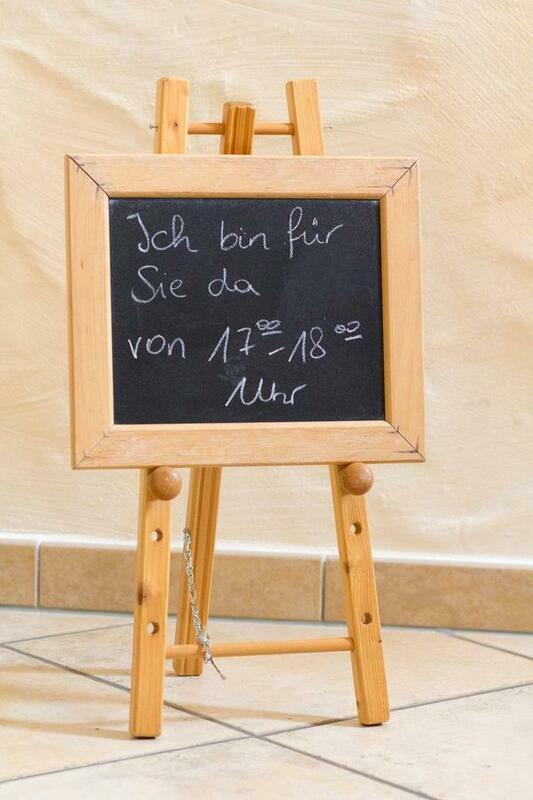 Ich bin für
Sie da
von 17⁰⁰-18⁰⁰
Uhr